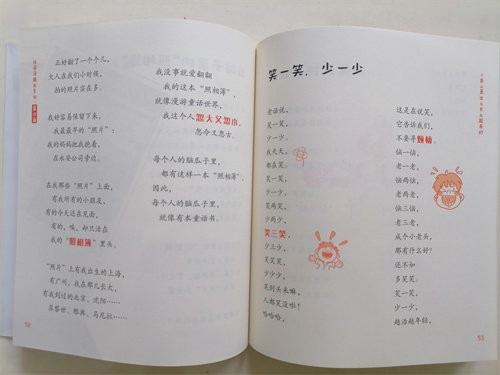 正好翻了一个个儿,
大人在我们小时候,
拍的照片实在多。
我好容易保留下来,
我最最早的“照片”:
我的妈妈把我抱着,
在永安公司旁边。
在我那些“照片”上面,
有我所有的小朋友,
有的今天还在见面,
有的,唉,却只活在
我的“照相簿”里头。
“照片”上有我出生的上海,
有广州,我在那儿长大,
有我到过的北京、沈阳……
莫黎世、雅典、马尼拉……
52
我没事就爱翻翻
我的这本“照相簿”,
就像漫游童话世界,
我这个人忽大又忽小,
忽今又忽古。
每个人的脑瓜子里,
都有这样一本“照相簿”。
因此,
每个人的脑瓜子里,
就像有本童话书。
笑一笑,少一少
老话说,
笑一笑,
少一少。
我天天,
都在笑。
笑一笑,
少一少,
笑两笑,
少两少,
笑三笑,
少三少,
笑笑笑,
少少少,
笑到头来嘛,
人都笑没啦!
哈哈哈,
这是在说笑,
它告诉我们,
不要寻烦恼。
恼一恼,
老一老,
恼两恼,
老两老,
恼三恼,
老三老,
成个小老头,
那有什么好?
还不如
多笑笑。
笑一笑,
少一少,
越活越年轻。
53